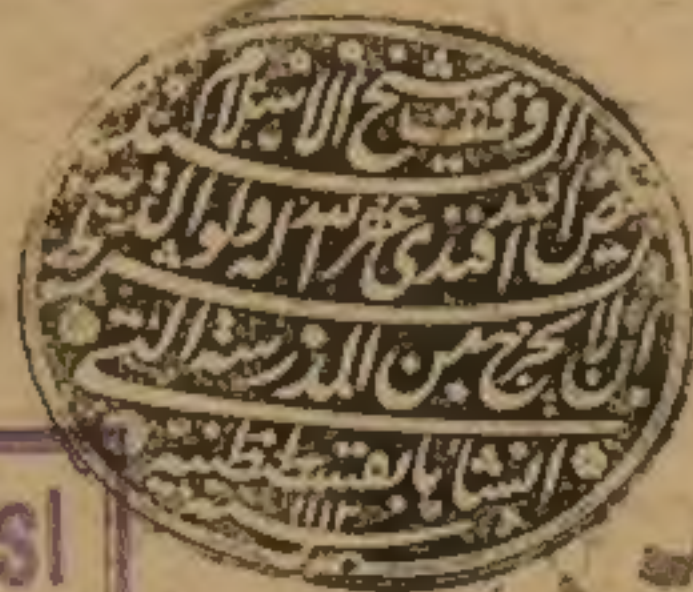 وقف شيخ الاسلام السيد
فيض الله افندى غفر الله له ولوالديه بشرط
ان لا يخرج من المدرسة التي
انشاها بقسطنطينية
سنة ١١١٢
Sİ